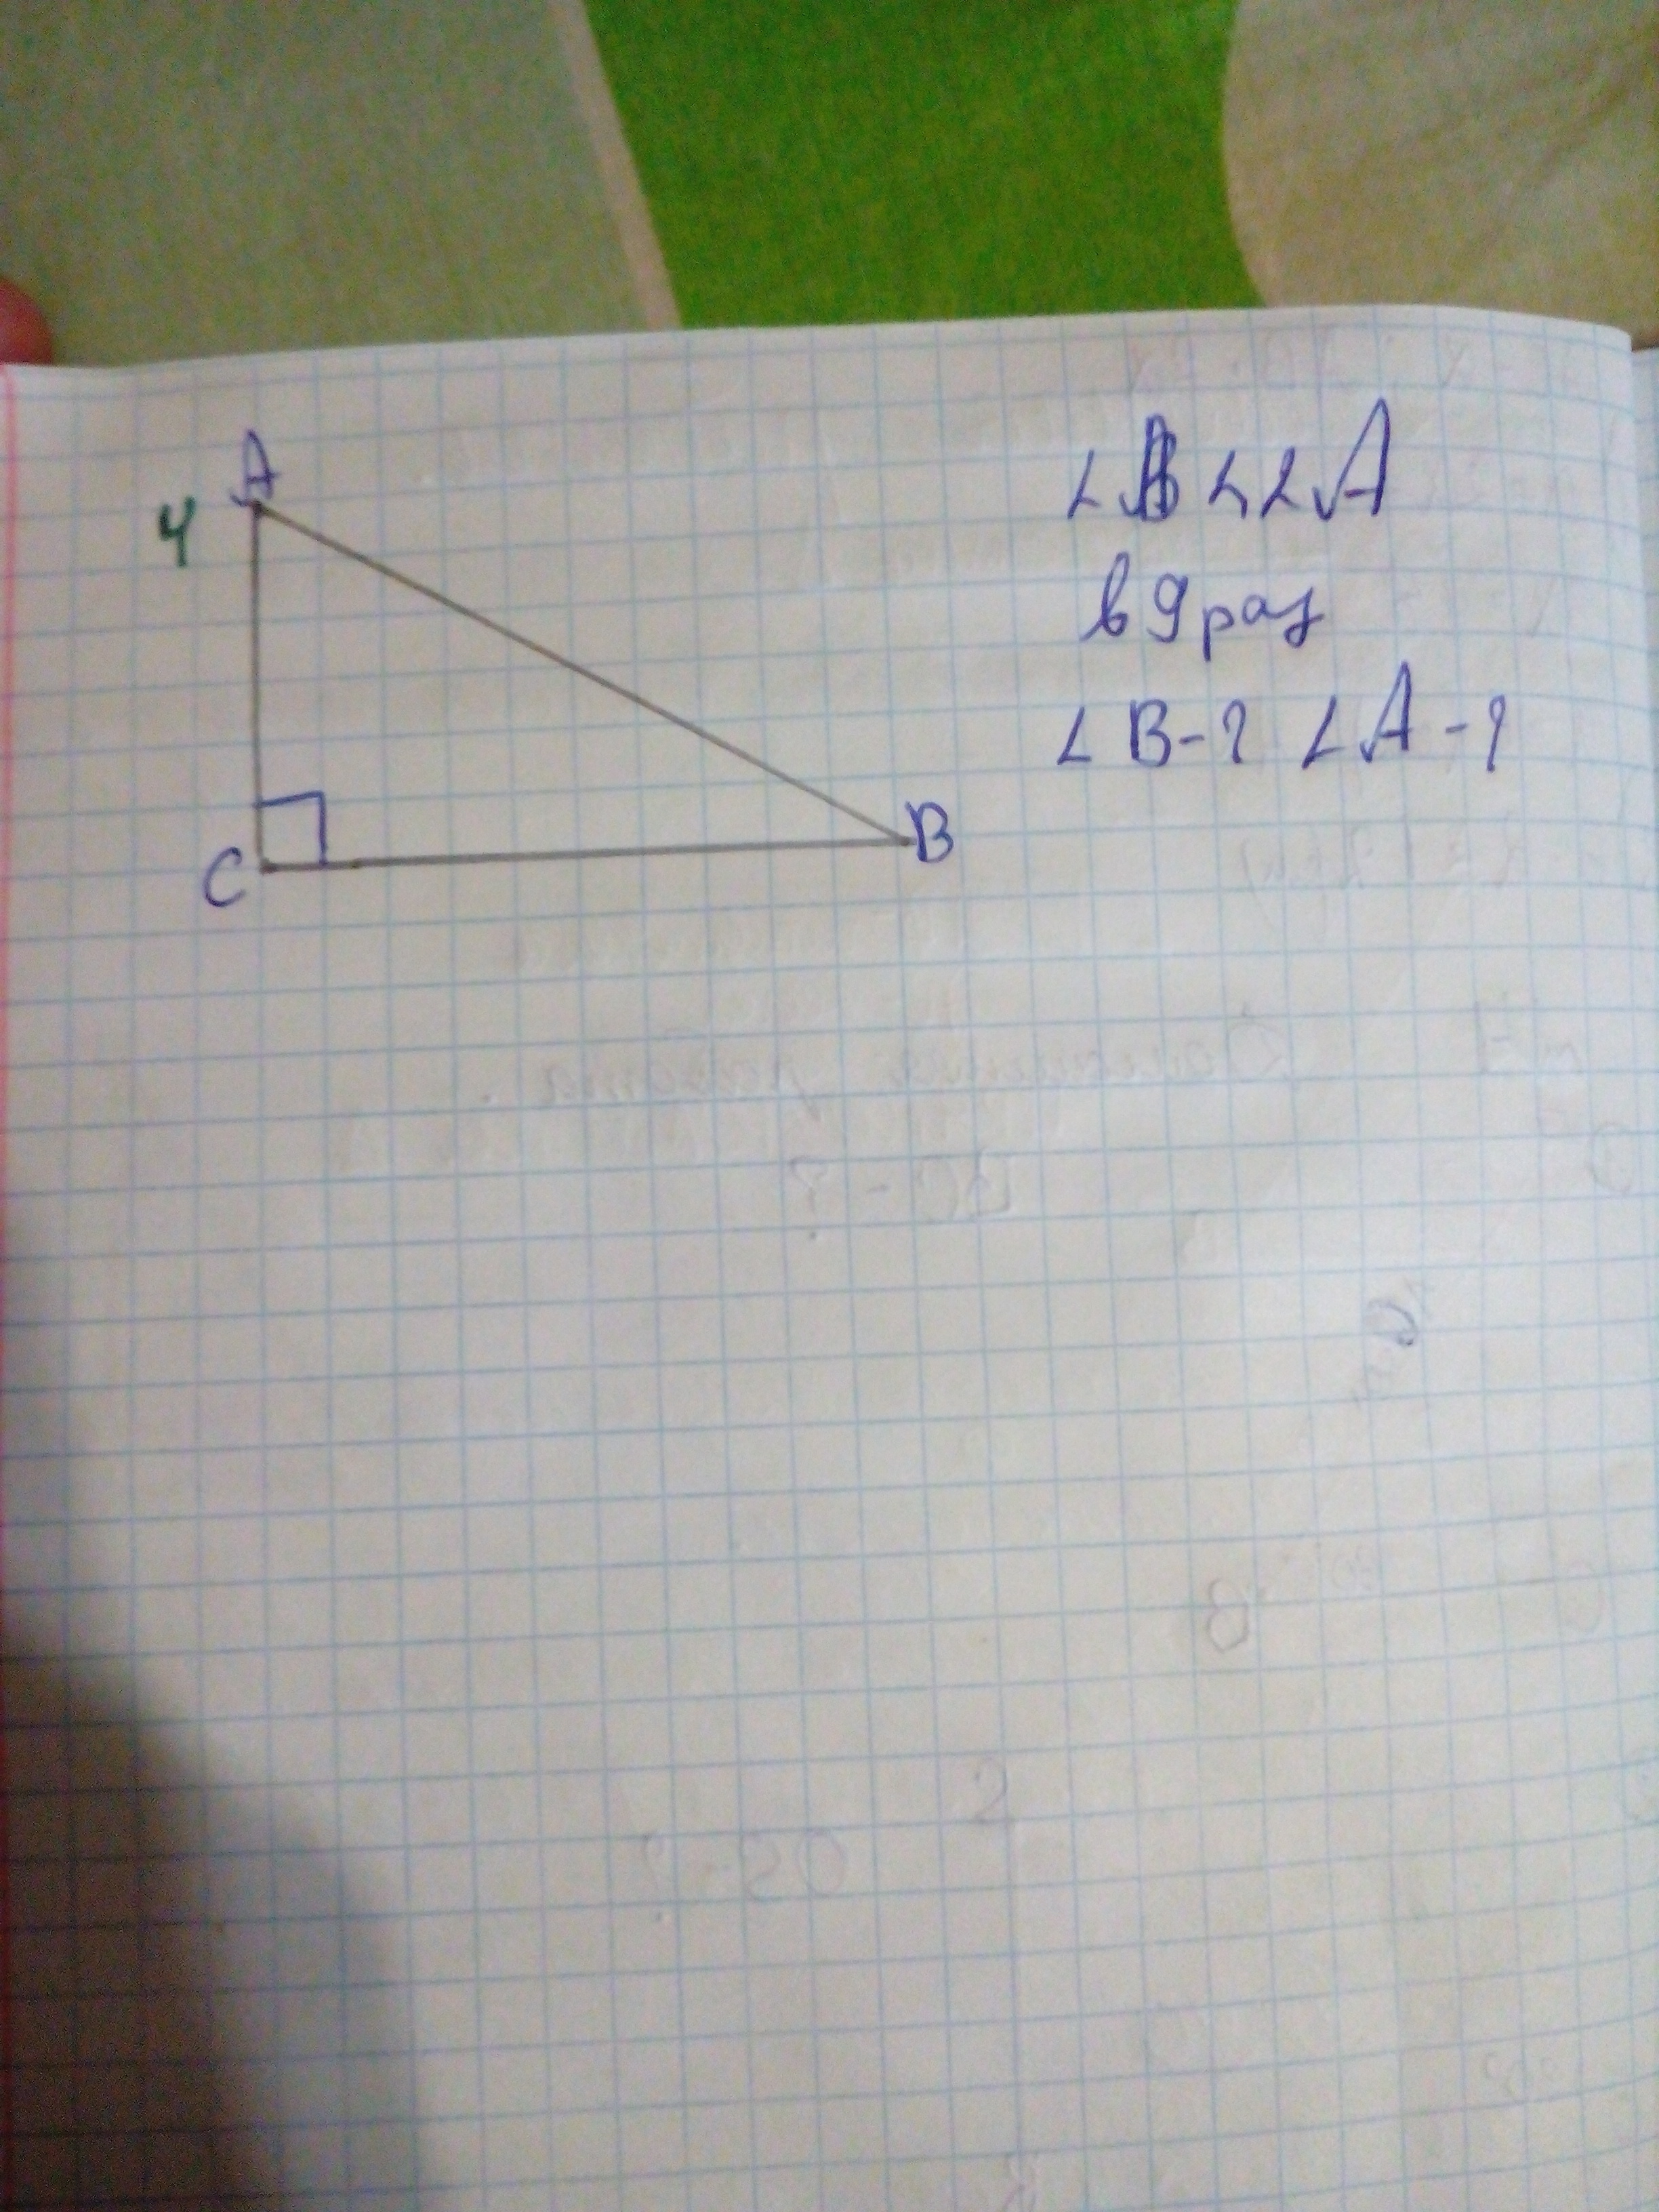 A
4
C
B
∠B < ∠A
в 9 раз
∠B-? ∠A-?